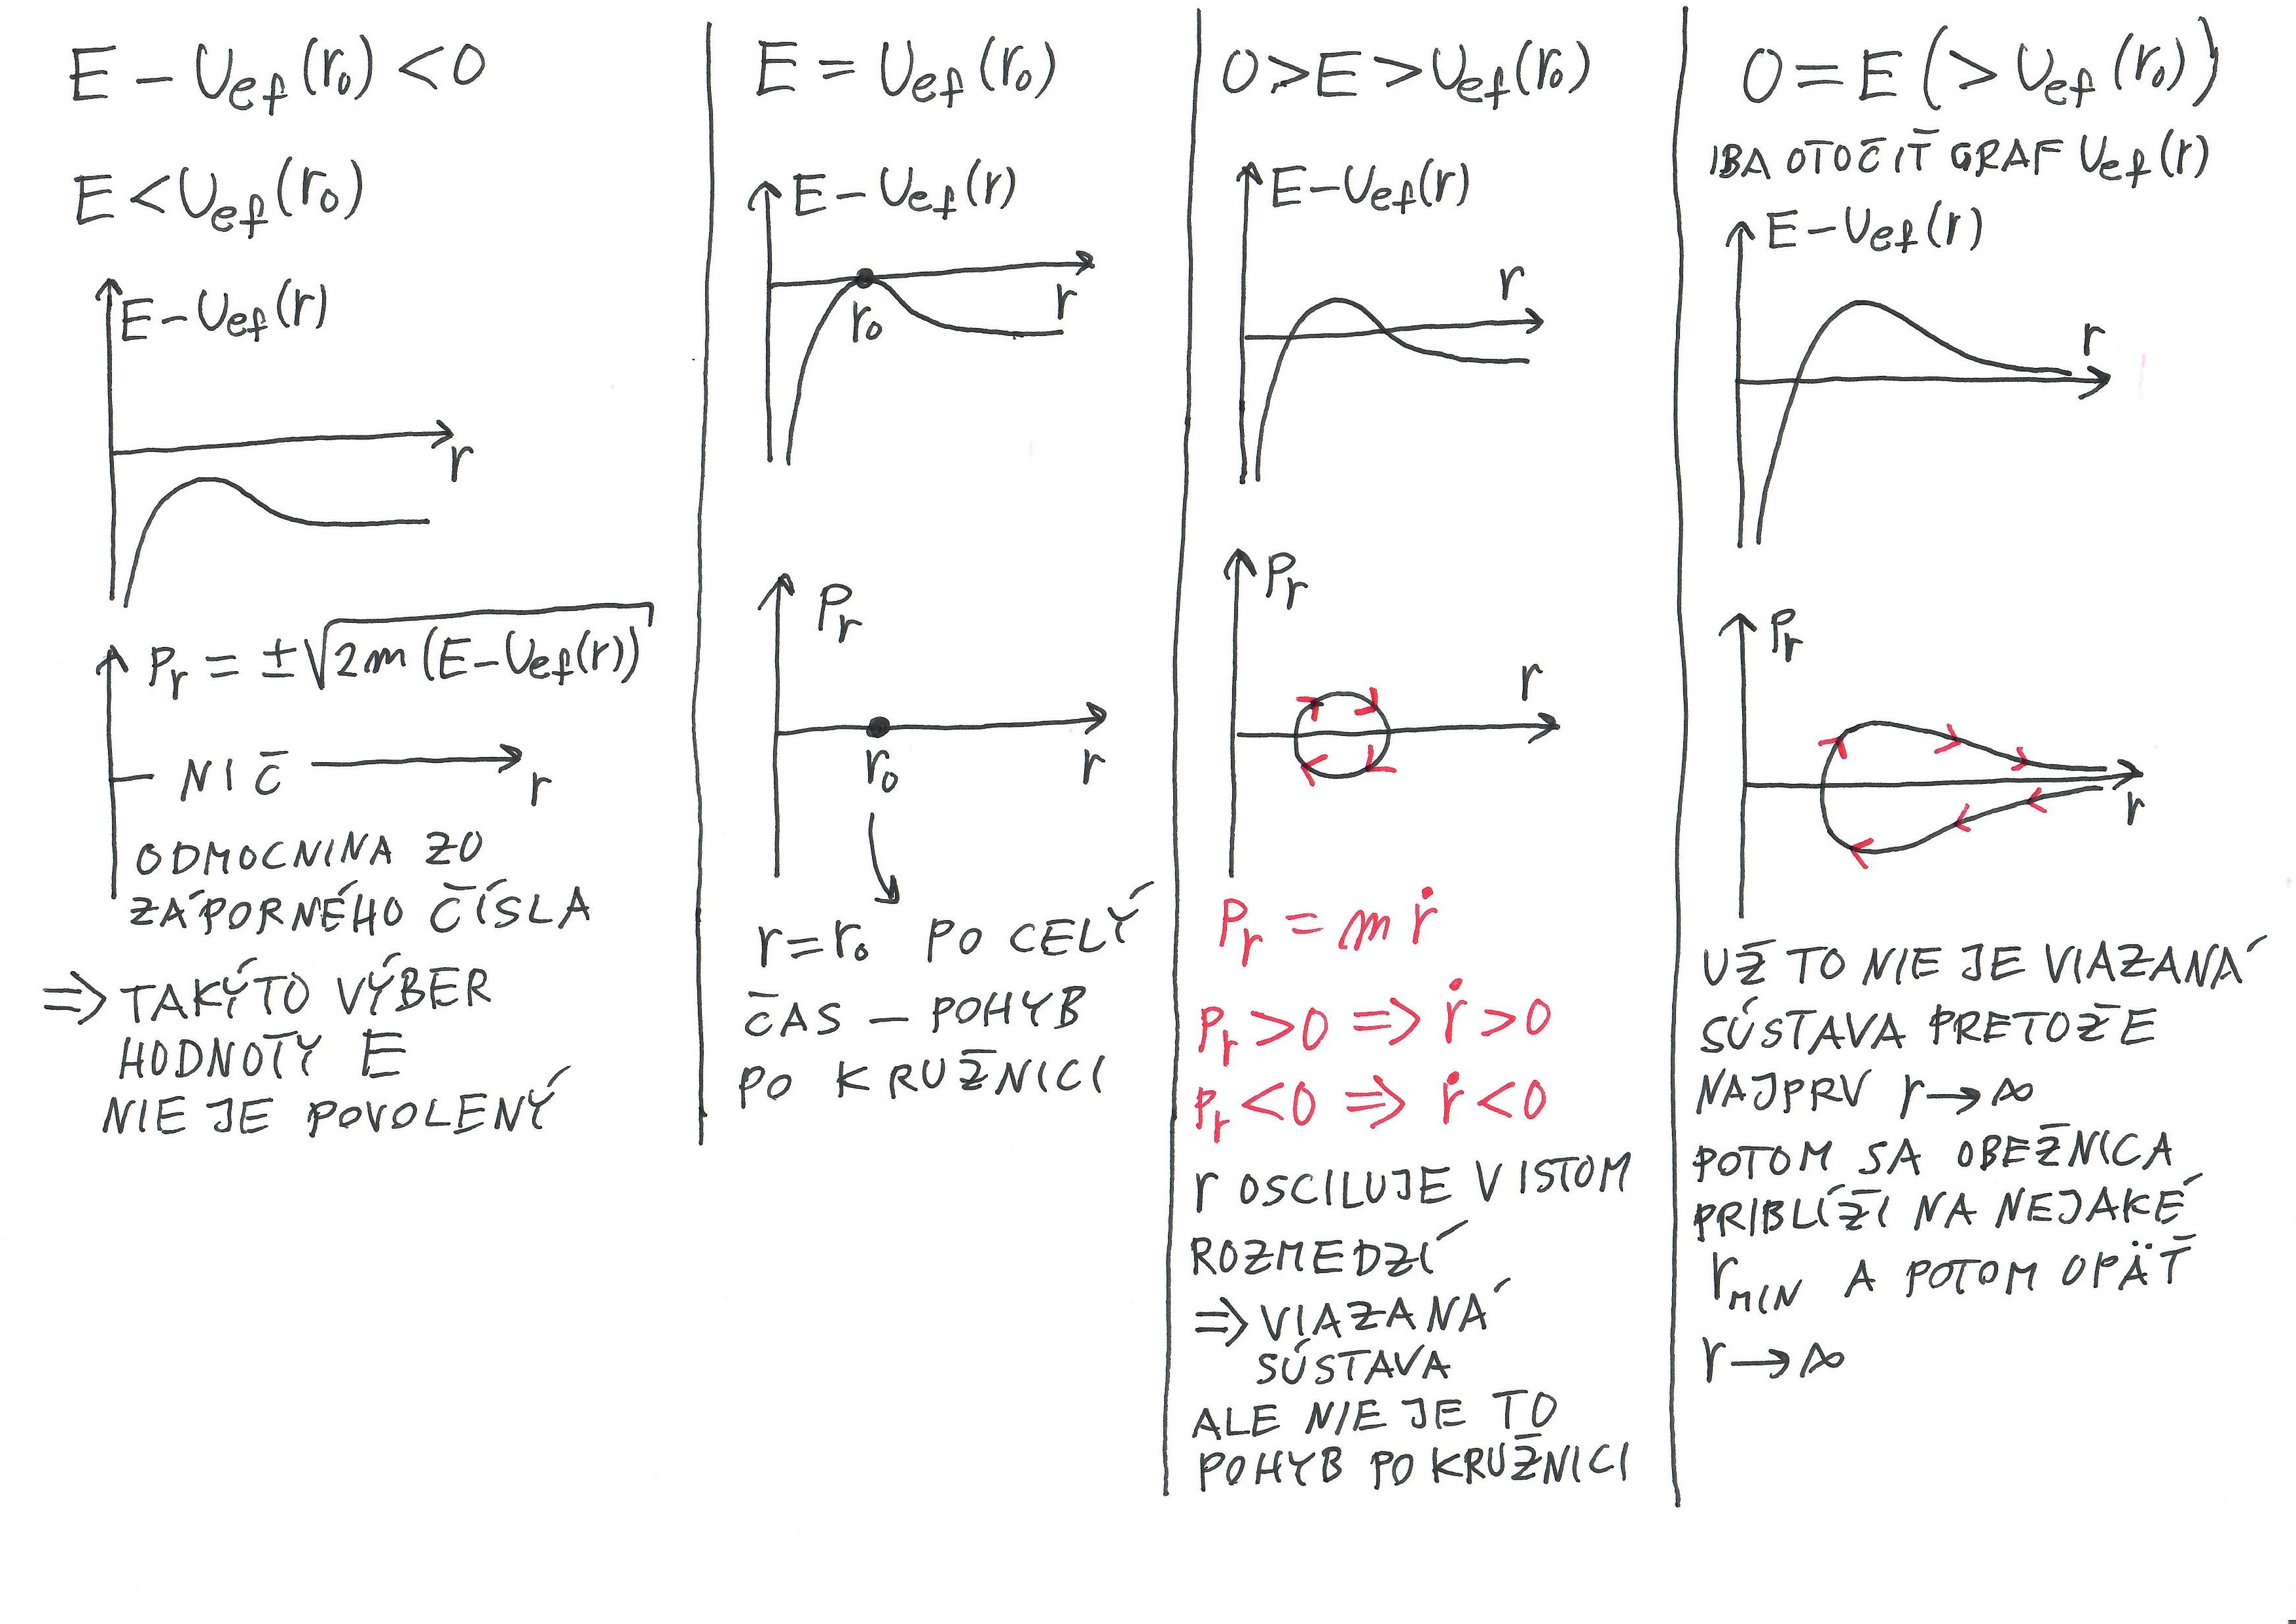 E - Uef(r₀) < 0
E < Uef(r₀)
E - Uef(r)
r
Pr = ±√2m(E-Uef(r))
NIČ
r
ODMOCNINA ZO
ZÁPORNÉHO ČÍSLA
⇒ TAKÝTO VÝBER
HODNOTY E
NIE JE POVOLENÝ
E = Uef(r₀)
E - Uef(r)
r₀
r
Pr
r₀
r
r = r₀ PO CELÝ
ČAS – POHYB
PO KRUŽNICI
0 > E > Uef(r₀)
E - Uef(r)
r
Pr
r
Pr = m ṙ
Pr > 0 ⇒ ṙ > 0
Pr < 0 ⇒ ṙ < 0
r OSCILUJE V ISTOM
ROZMEDZÍ
⇒ VIAZANÁ
SÚSTAVA
ALE NIE JE TO
POHYB PO KRUŽNICI
0 = E (> Uef(r₀))
IBA OTOČIŤ GRAF Uef(r)
E - Uef(r)
r
Pr
r
UŽ TO NIE JE VIAZANÁ
SÚSTAVA PRETOŽE
NAJPRV r → ∞
POTOM SA OBEŽNICA
PRIBLÍŽI NA NEJAKÉ
rMIN A POTOM OPÄŤ
r → ∞